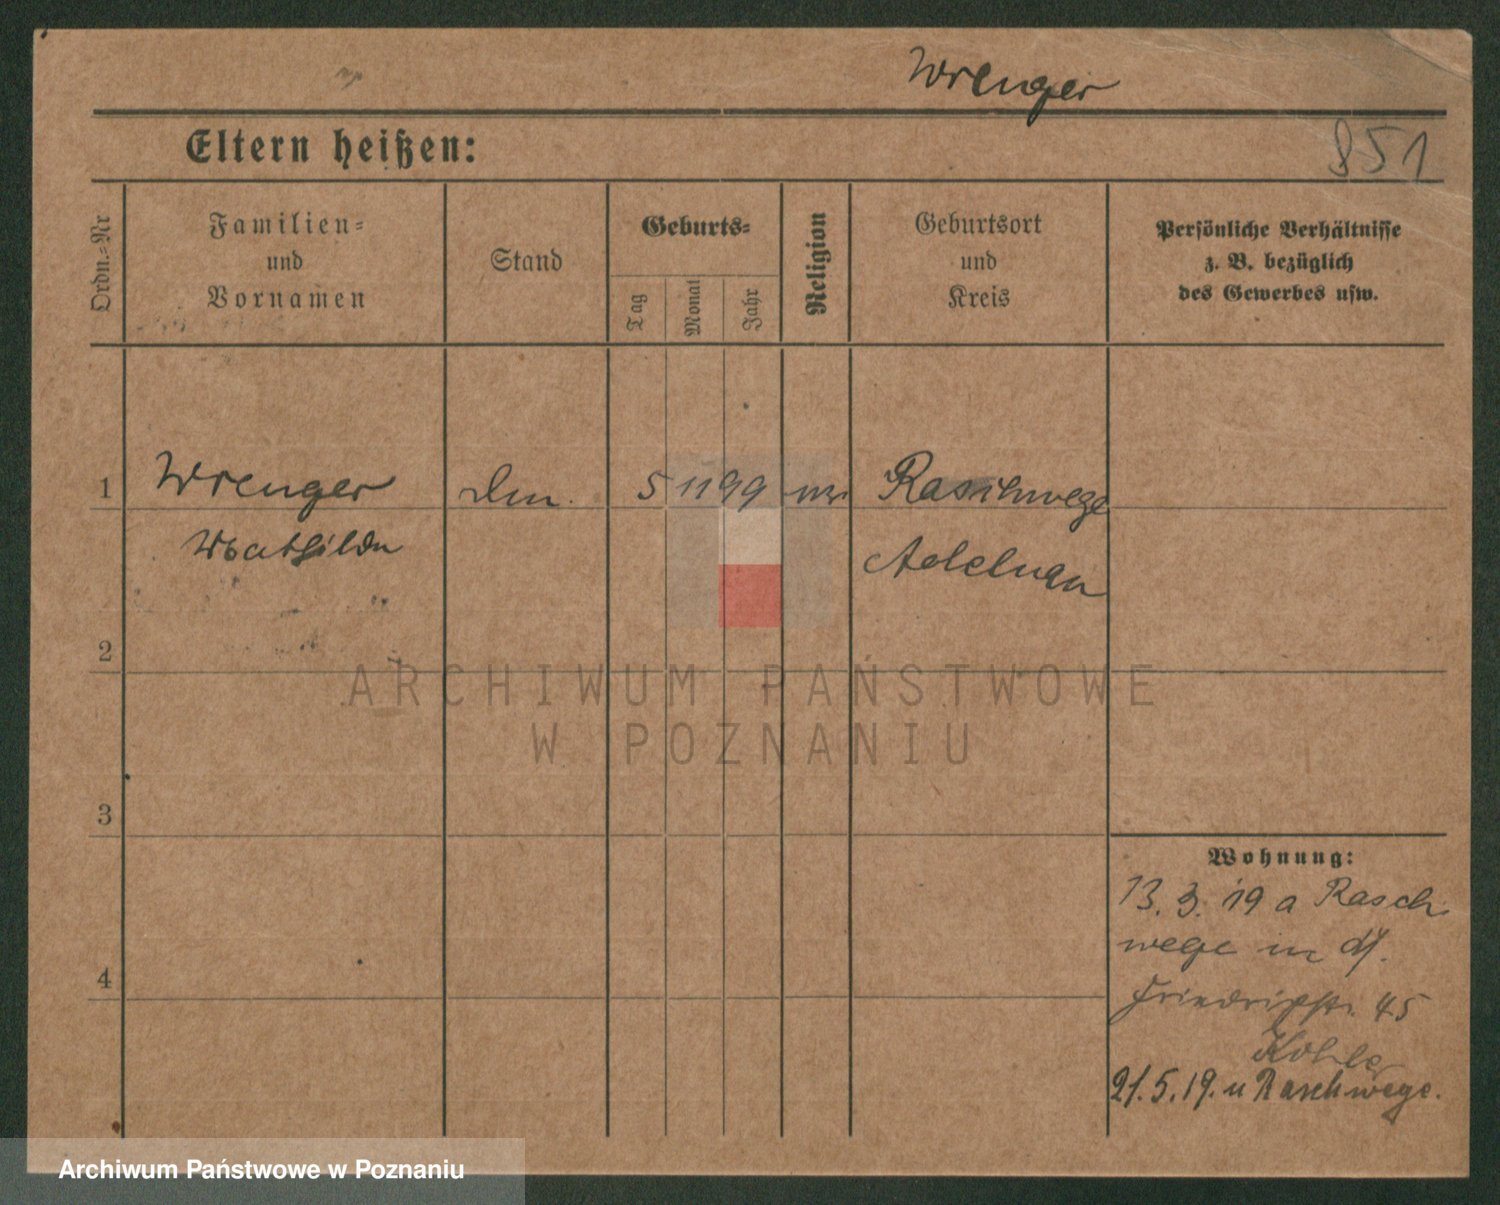 Wrenger
851
Eltern heißen:
Ordn.=Nr
Familien=
und
Vornamen
Stand
Geburts=
Tag
Monat
Jahr
Religion
Geburtsort
und
Kreis
Persönliche Verhältnisse
z. B. bezüglich
des Gewerbes usw.
1
Wrenger
5 11 99
Raschwege
Mathilde
Adelnau
2
ARCHIWUM PAŃSTWOWE
W POZNANIU
3
Wohnung:
13. 3. 19 a Rasch
wege in
Friedrichstr. 45
4
Kohle
21. 5. 19. u Raschwege.
Archiwum Państwowe w Poznaniu